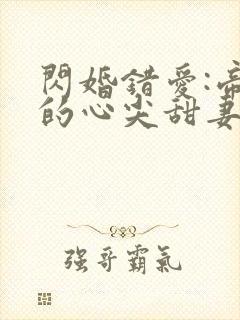 閃婚錯愛:帝
的心尖甜妻
强哥霸氣